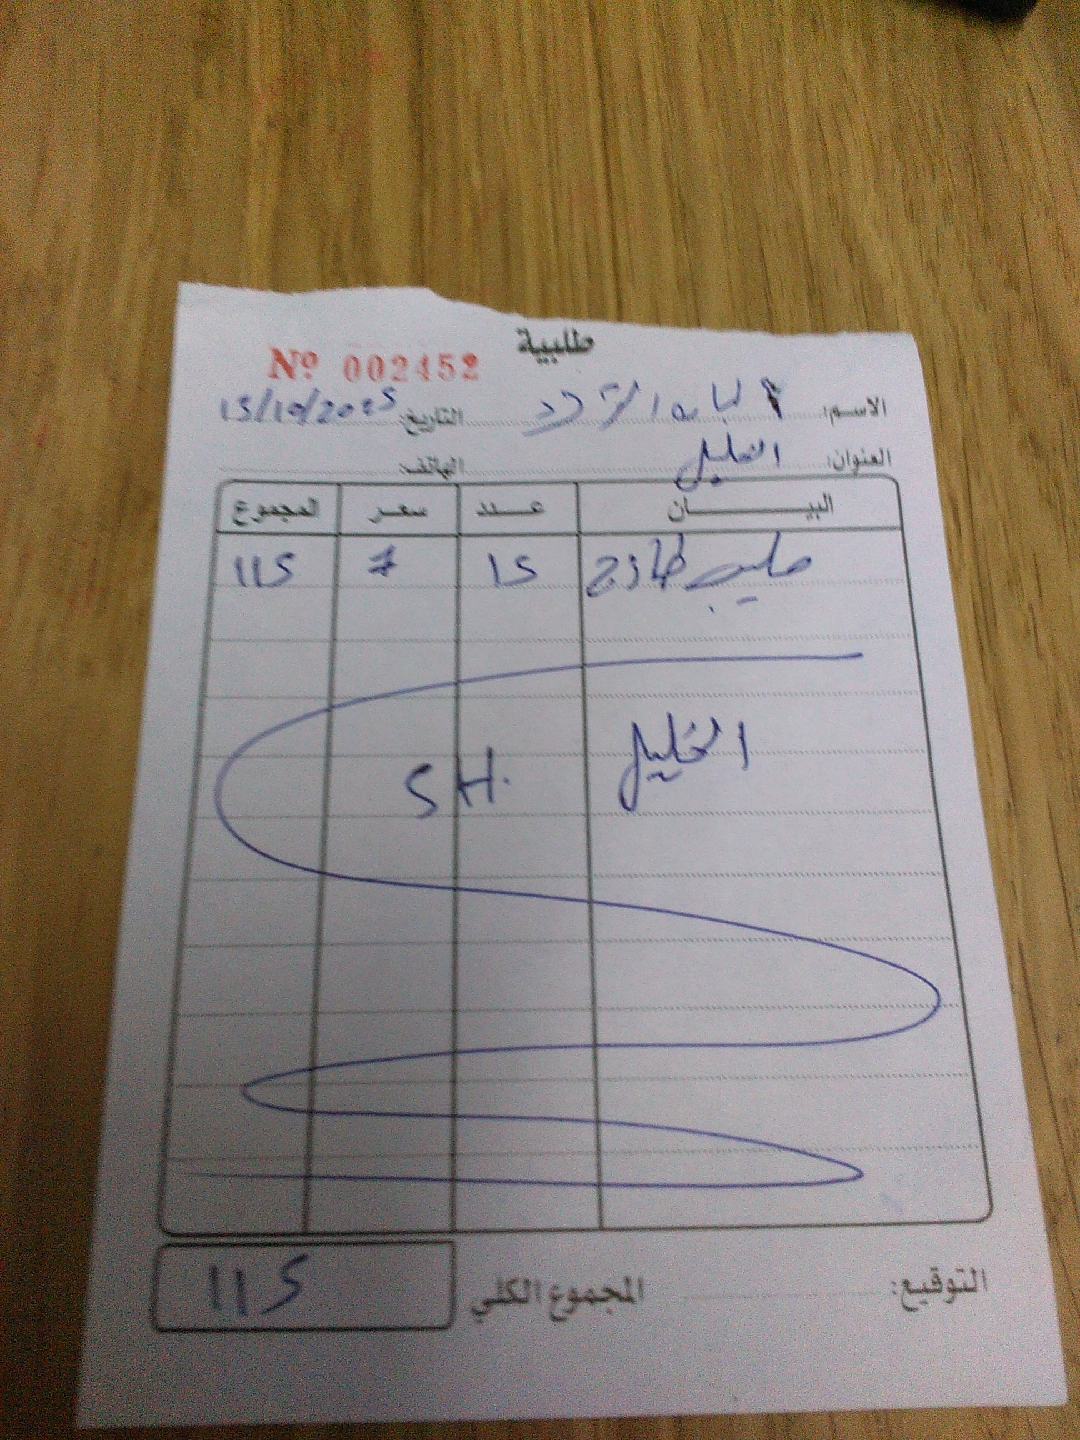 طلبية
Nº 002452
الاسم:
التاريخ: 15/10/2025
العنوان: الخليل الهاتف:
البيـــــان عــدد سعـر المجموع
حليب طازج 15 115
الخليل S H.
التوقيع: المجموع الكلي 115